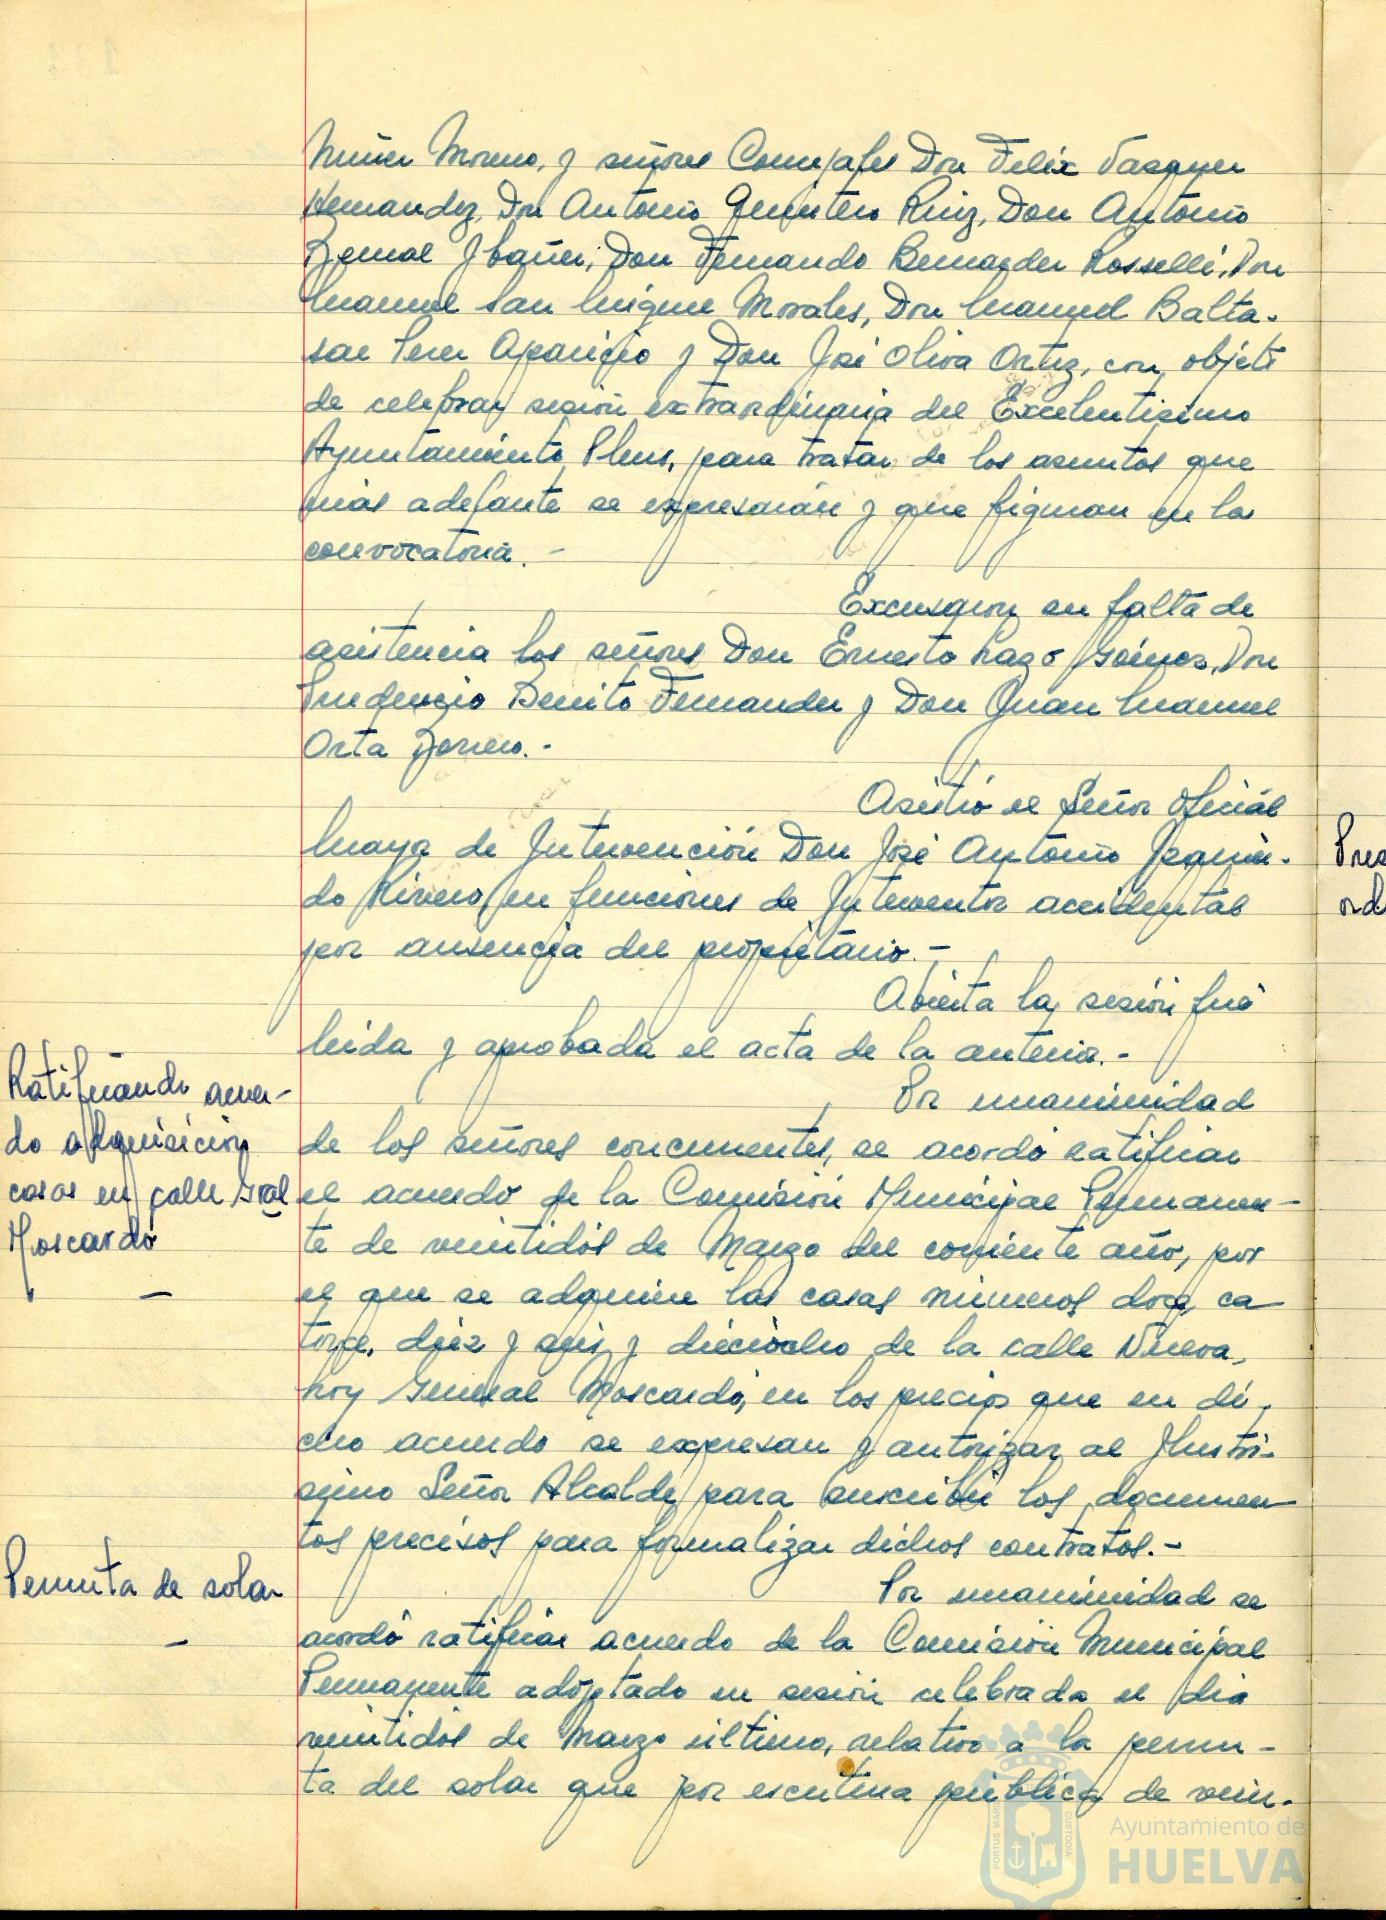 Nuñez Moreno, y señores Concejales Don Felix Vazquez
Hernandez, Don Antonio Quintero Ruiz, Don Antonio
Bernal Ibañez, Don Fernando Bernardez Rosselló, Don
Manuel San Miguel Morales, Don Manuel Balta-
sar Perez Aparicio y Don José Oliva Ortiz, con objeto
de celebrar sesión extraordinaria del Excelentisimo
Ayuntamiento Pleno, para tratar de los asuntos que
más adelante se expresarán y que figuran en la
convocatoria.-
Excusaron su falta de
asistencia los señores Don Ernesto Lazo Gómez, Don
Prudencio Benito Fernandez y Don Juan Manuel
Orta
Asistió el Señor Oficial
Mayor de Intervención Don José Antonio
do Rivero en funciones de Interventor accidental
por ausencia del propietario.-
Abierta la sesión fué
leida y aprobada el acta de la anterior.-
Ratificando acuer-
do adquisición
casas en calle Gral
Moscardó
—
Por unanimidad
de los señores concurrentes, se acordó ratificar
el acuerdo de la Comisión Municipal Permanen-
te de veintidós de Marzo del corriente año, por
el que se adquiere las casas números doce, ca
torce, diez y seis y dieciocho de la calle Nueva,
hoy General Moscardó, en los precios que en di-
cho acuerdo se expresan y autorizar al Ilustri-
simo Señor Alcalde para suscribir los documen
tos precisos para formalizar dichos contratos.-
Permuta de solar
—
Por unanimidad se
acordó ratificar acuerdo de la Comisión Municipal
Permanente adoptado en sesión celebrada el dia
veintidós de Marzo último, relativo a la permu-
ta del solar que por escritura pública de vein-
Pres
ord
PORTUS MARIS
CUSTODIA
Ayuntamiento de
HUELVA